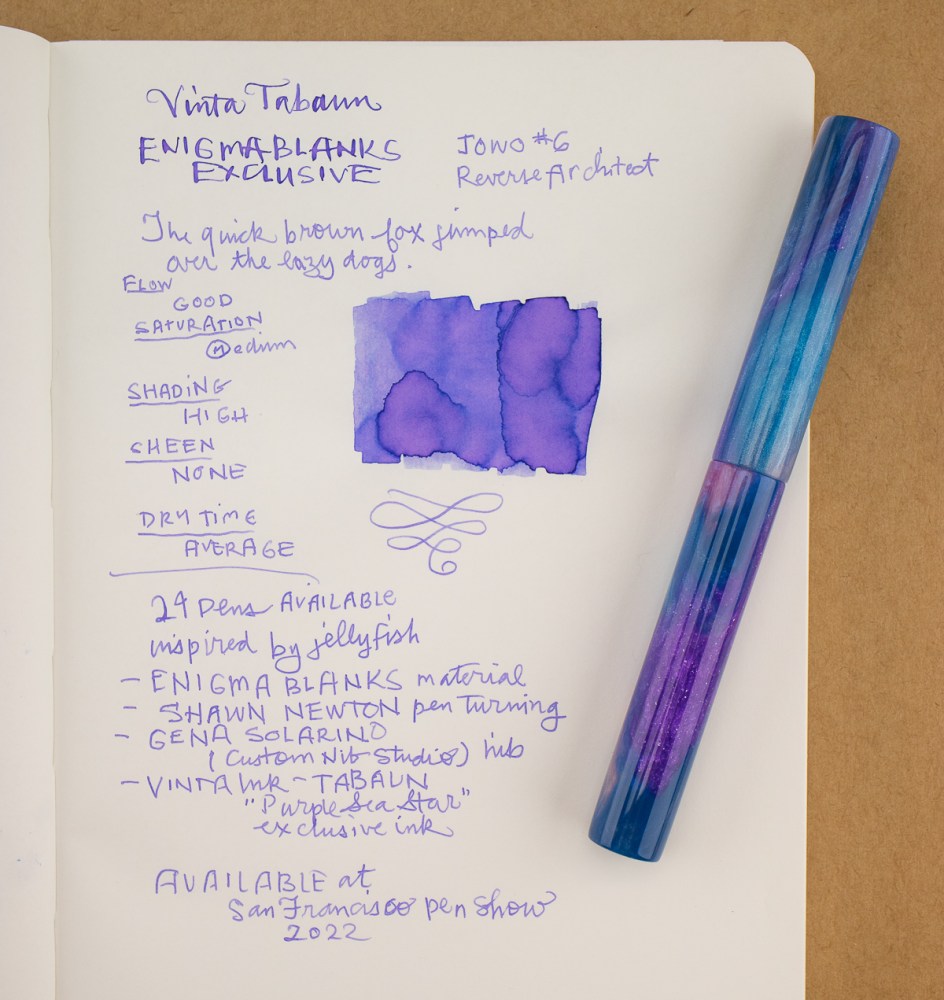 Vinta Tabaun
ENIGMA BLANKS
EXCLUSIVE
JOWO #6
Reverse Architect
The quick brown fox jumped
over the lazy dogs.
FLOW
GOOD
SATURATION
Medium
SHADING
HIGH
SHEEN
NONE
DRY TIME
AVERAGE
24 Pens AVAILABLE
inspired by jellyfish
- ENIGMA BLANKS material
- SHAWN NEWTON pen turning
- GENA SOLARINO
(Custom Nib Studio) nib
- VINTA INK - TABAUN
"Purple Sea Star"
exclusive ink
AVAILABLE at
San Francisco pen show
2022